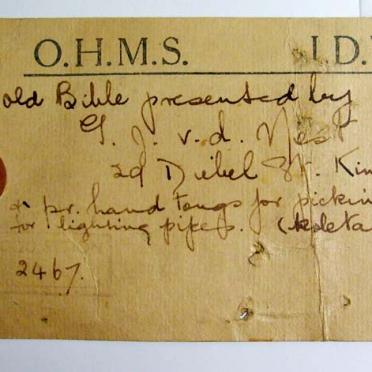 O.H.M.S. I.D.
old Bible presented by
G. J. v. d. Nest
2d Diebel St. Kim
pr. hand tongs for pickin
for lighting pipes. (
2467.